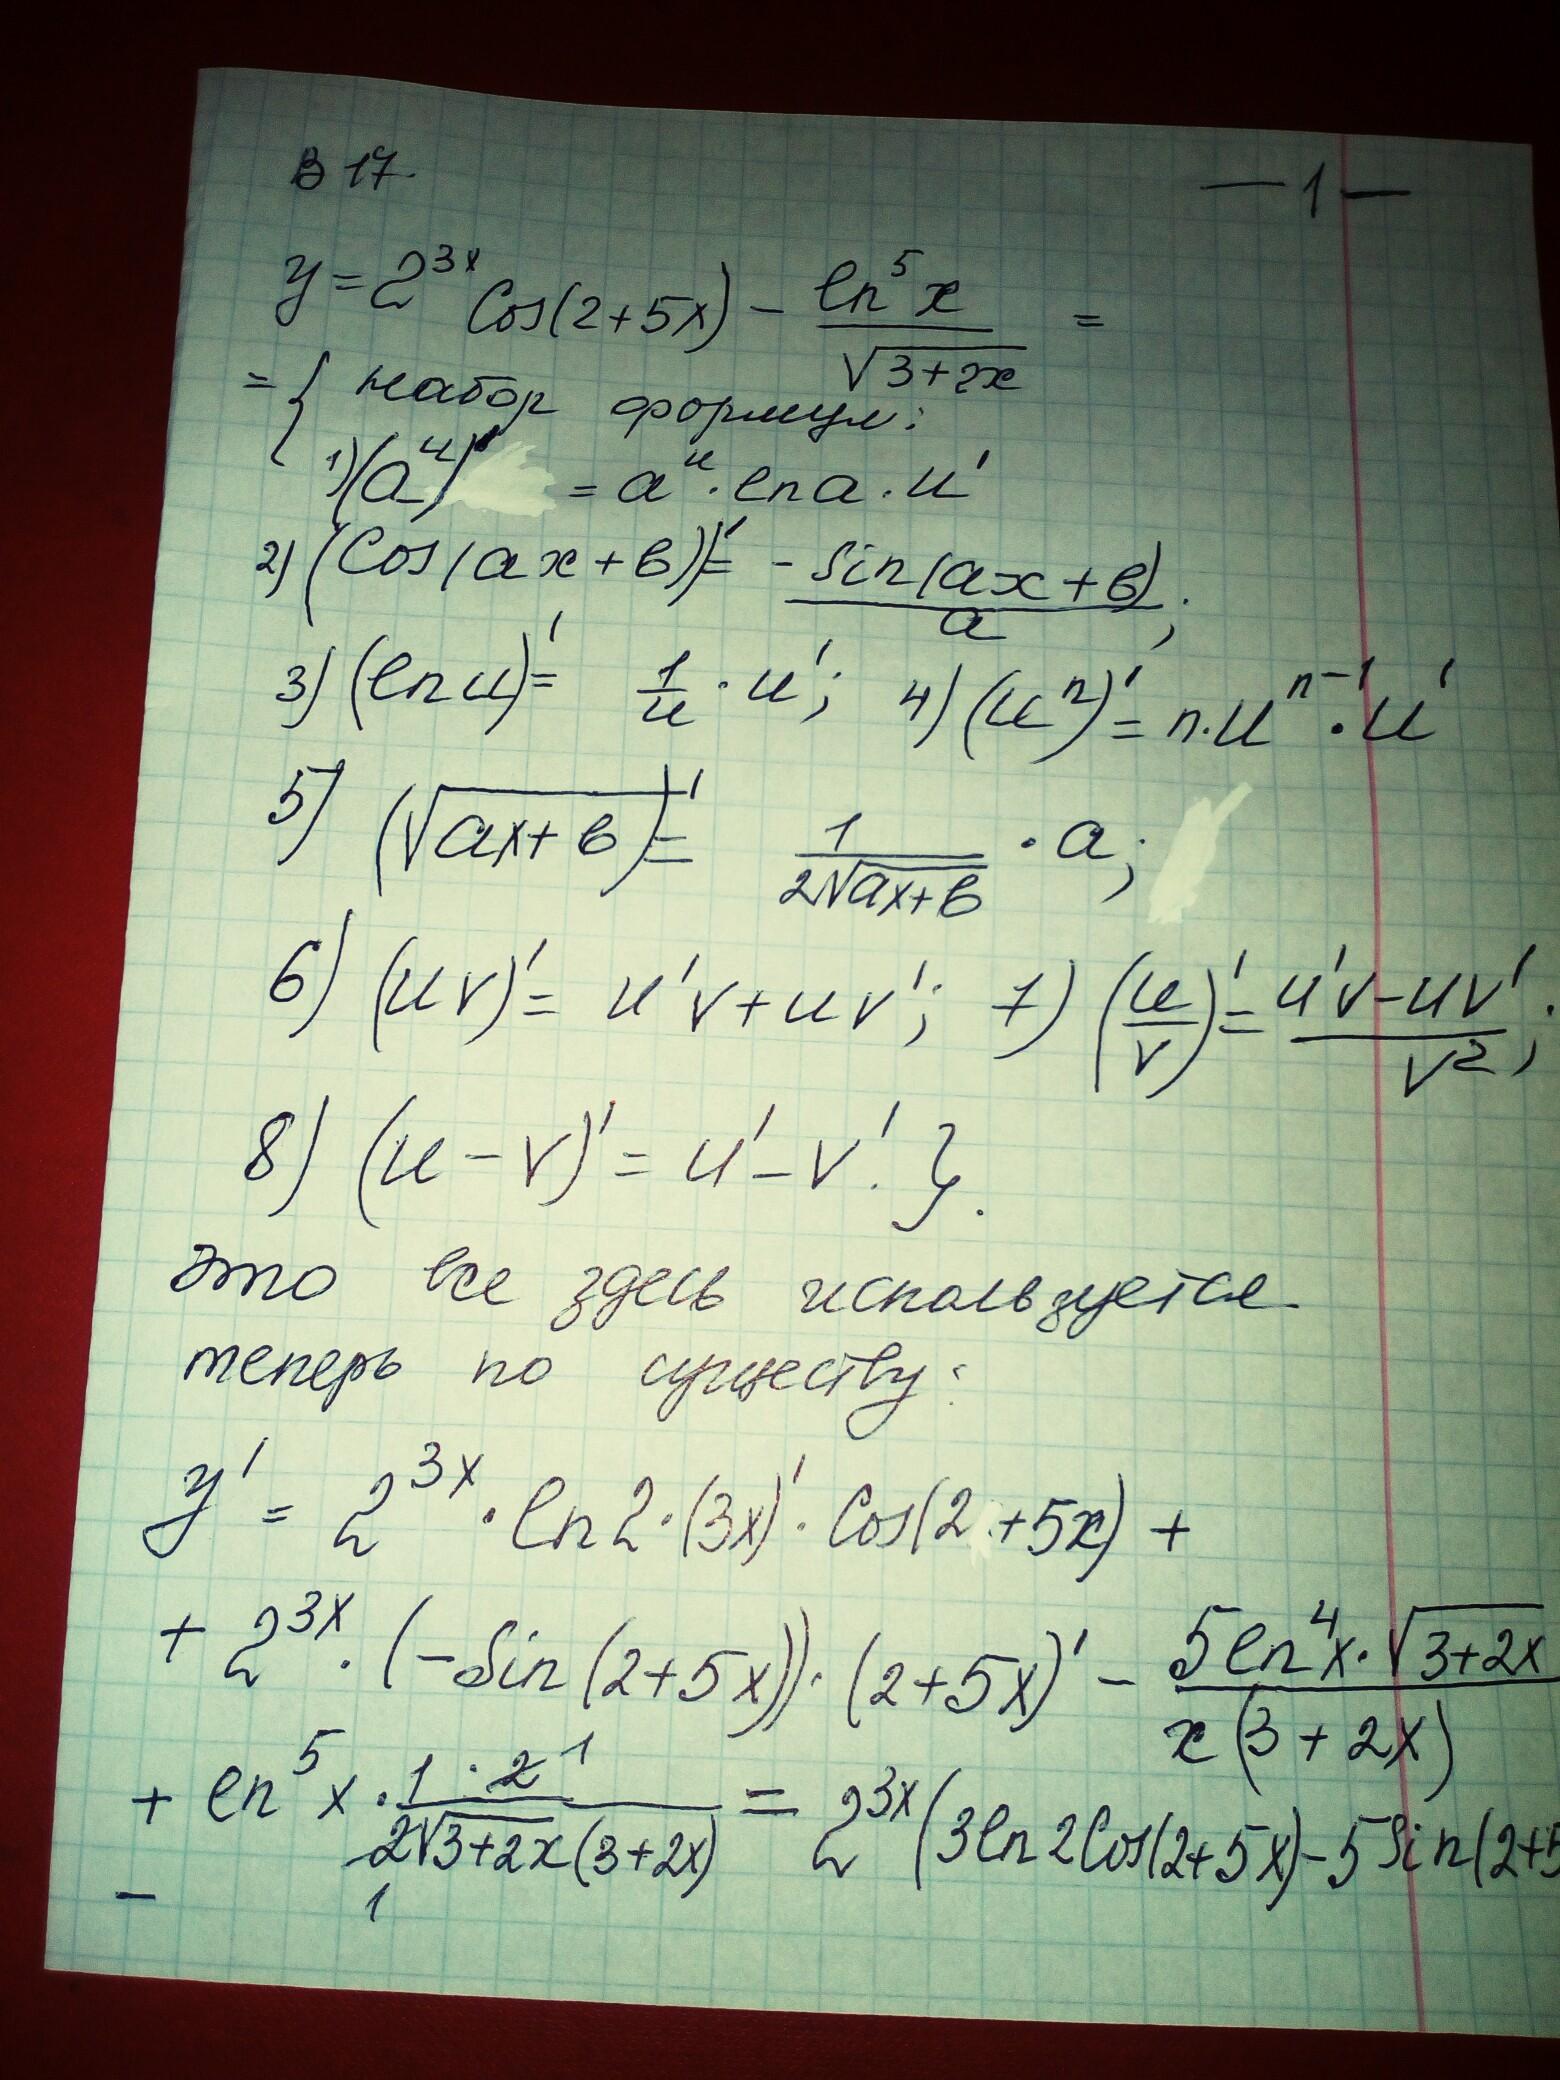 В 17. — 1 —
y = 2^{3x} Cos(2+5x) − \frac{ln^5 x}{\sqrt{3+2x}} =
= { набор формул:
1) (a^u)' = a^u · ln a · u'
2) (Cos(ax+в))' = \frac{-Sin(ax+в)}{a};
3) (ln u)' = \frac{1}{u} · u'; 4) (u^n)' = n·u^{n-1} · u'
5) (\sqrt{ax+в})' = \frac{1}{2\sqrt{ax+в}} · a;
6) (uv)' = u'v + uv'; 7) (\frac{u}{v})' = \frac{u'v − uv'}{v^2};
8) (u − v)' = u' − v'. }.
Это все здесь используется
теперь по существу:
y' = 2^{3x} · ln2 · (3x)' · Cos(2+5x) +
+ 2^{3x} · (−Sin(2+5x)) · (2+5x)' − \frac{5 ln^4 x · \sqrt{3+2x}}{x(3+2x)}
+ ln^5 x · \frac{1 · 2 1}{2\sqrt{3+2x}(3+2x)} = 2^{3x}(3ln2Cos(2+5x) − 5Sin(2+5
− 1